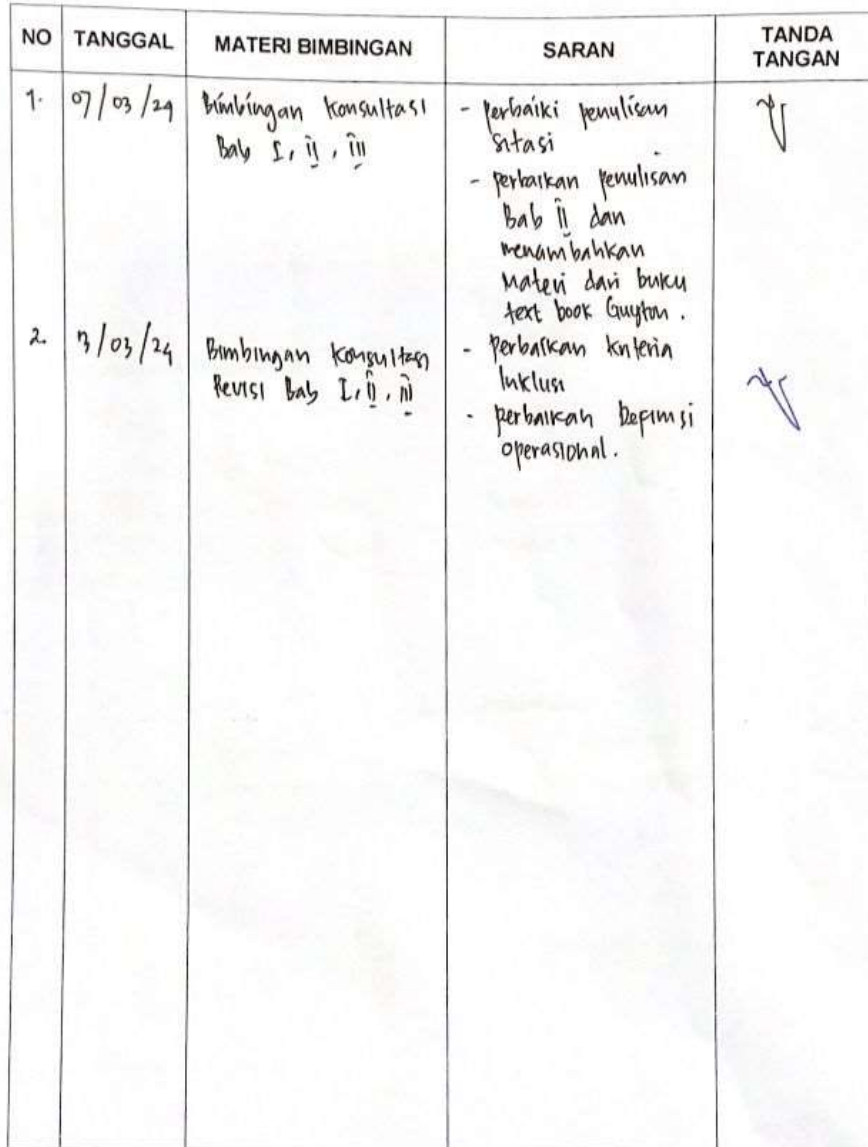 NO TANGGAL MATERI BIMBINGAN SARAN TANDA TANGAN
1. 07/03/24 Bimbingan Konsultasi
Bab I, II, III
- Perbaiki penulisan
sitasi
- perbaikan penulisan
Bab II dan
menambahkan
Materi dari buku
text book Guyton.
2. /03/24 Bimbingan Konsultasi
Revisi Bab I, II, III
- Perbaikan kriteria
Inklusi
- perbaikan Definisi
operasional.